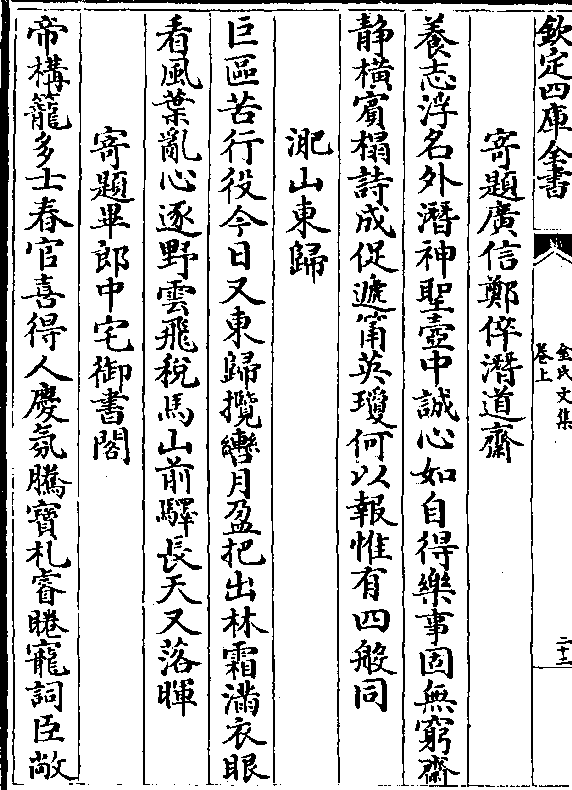 欽定四庫全書
金氏文集
卷上
二十三
寄題廣信鄭倅潛道齋
養志浮名外潛神聖壺中誠心如自得樂事固無窮齋
静橫賓榻詩成促遞筩英瓊何以報惟有四般同
淝山東歸
巨區苦行役今日又東歸攬轡月盈把出林霜滿衣眼
看風葉亂心逐野雲飛稅馬山前驛長天又落暉
寄題畢郎中宅御書閣
帝構籠多士春官喜得人慶氛騰寶札睿睠寵詞臣敞